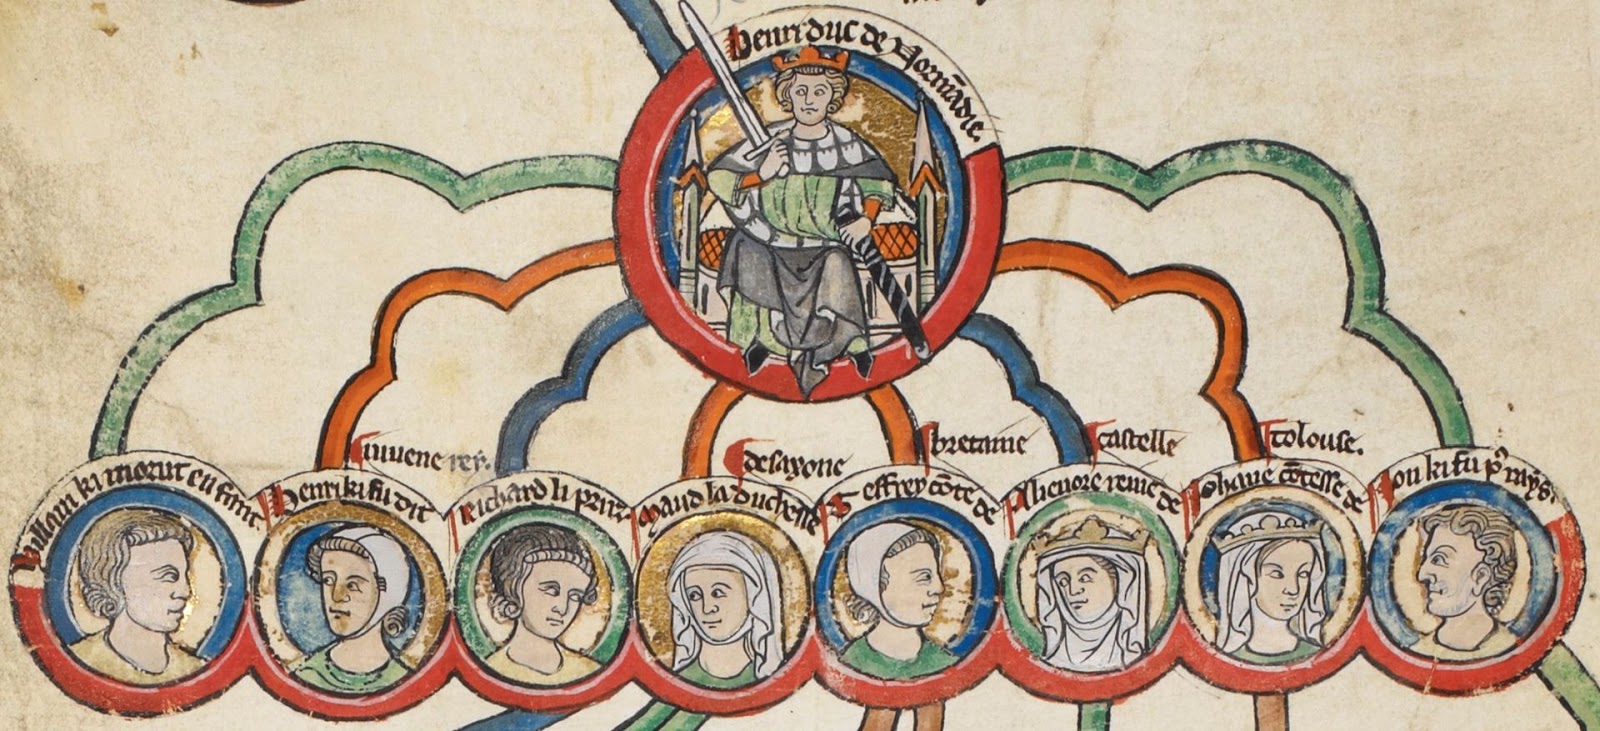 henri duc de Normãdie.
Willam ki morut enfant
Henri ki fu dit
iuuene rey.
Richard li
Maud la duchesse
de saxone
Geffrey cõte de
bretaine
Alienore reine de
castelle
Johane cõtesse de
tolouse.
Jon ki fu rays.